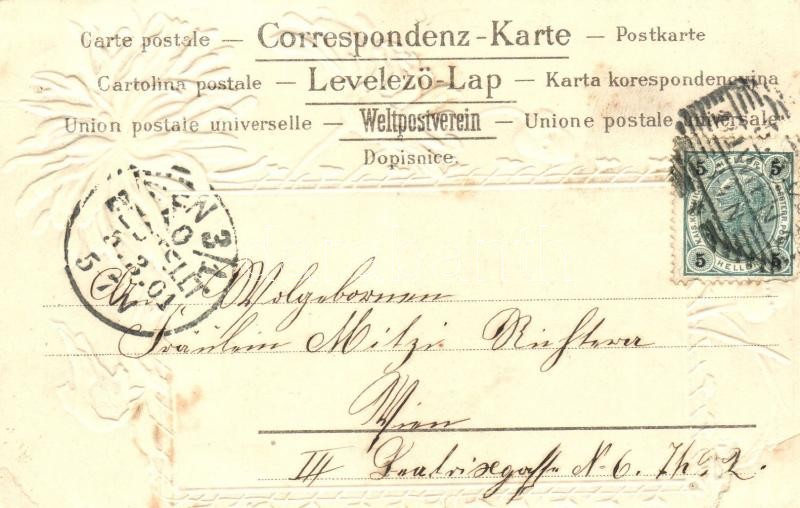 Carte postale — Correspondenz-Karte — Postkarte
Cartolina postale — Levelezö-Lap — Karta korespondencyjna
Union postale universelle — Weltpostverein — Unione postale universale
Dopisnice.
5 5
5 5
HELLER
WIEN 3/
3.01
An Wolgebornen
Fräulein Mitzi Richtera
Wien
III Beatrixgasse N. 6. Th. 2.